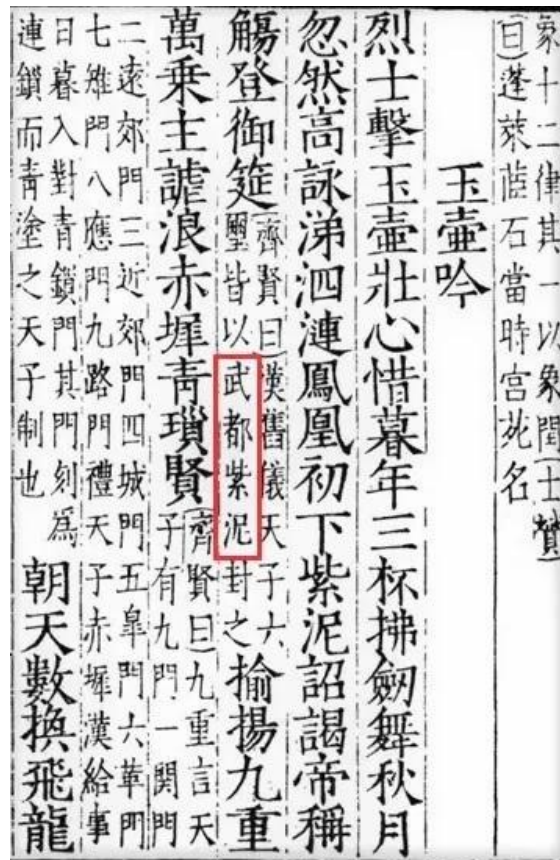 象十二律其一以象閏(士贊
曰)蓬萊石當時宮名
玉壺吟
烈士擊玉壺壯心惜暮年三杯拂劒舞秋月
忽然高詠涕泗漣鳳凰初下紫泥詔謁帝稱
觴登御筵
(齊賢曰)漢舊儀天子六
璽皆以武都紫泥封之
揄揚九重
萬乘主謔浪赤墀青瑣賢
(齊賢曰)九重言天
子有九門一関門
二遠郊門三近郊門四城門五臯門六門
七雉門八應門九路門禮天子赤墀漢給事
日暮入對青鎖門其門刻爲
連鎖而青塗之天子制也
朝天數換飛龍